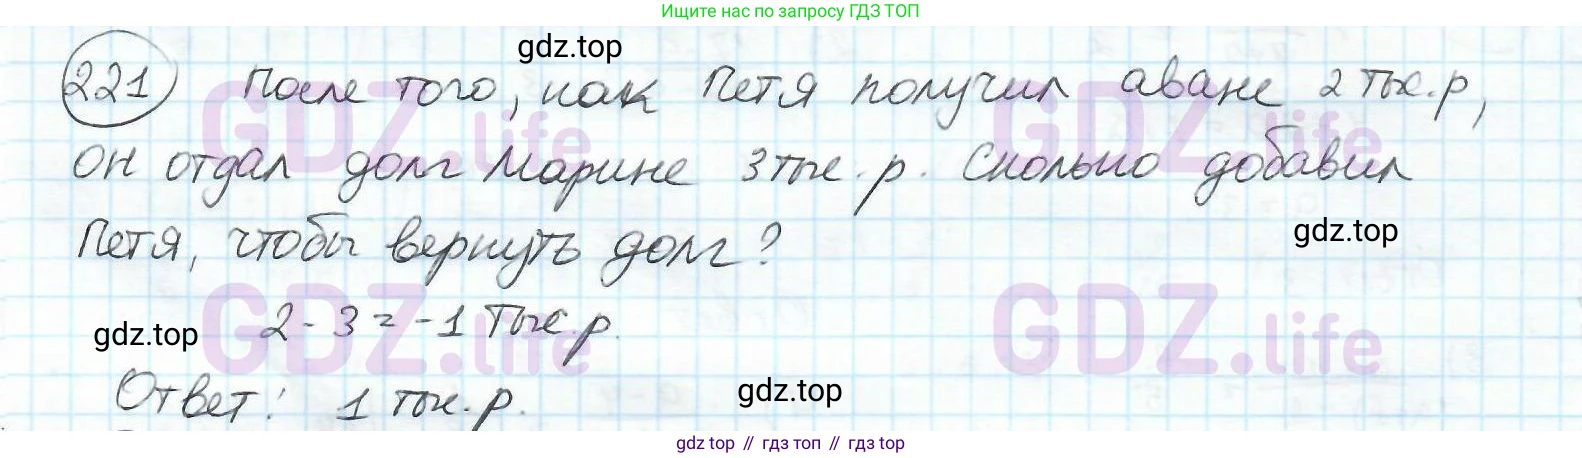 Ищите нас по запросу ГДЗ ТОП
gdz.top
221 После того, как Петя получил аванс 2 тыс.р,
GDZ.life GDZ.life
он отдал долг Марине 3 тыс.р. Сколько добавил
gdz.top
Петя, чтобы вернуть долг?
gdz.top 2 - 3 = -1 тыс.р.
GDZ.life GDZ.life
gdz.top
Ответ: 1 тыс.р.
gdz top // гдз топ // гдз top